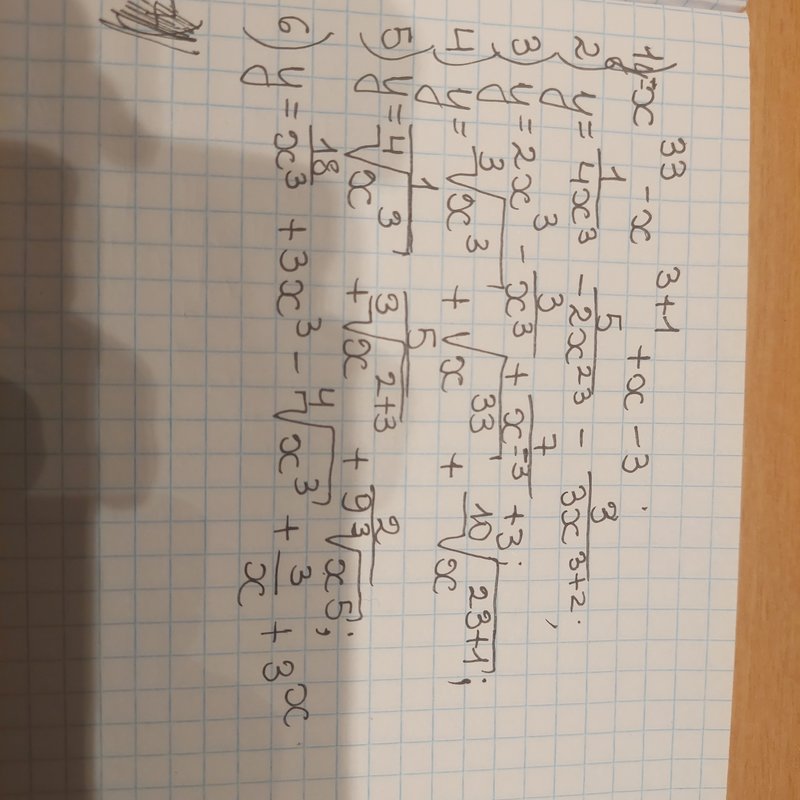 1) y = x^33 - x^(3+1) + x - 3.
2) y = 1/(4x^3) - 5/(2x^23) - 3/(3x^(3+2));
3) y = 2x^3 - 3/(x^3) + 7/(x^-3) + 3;
4) y = ∛(x^3) + √(x^33) + ¹⁰√(x^(23+1));
5) y = 1/(⁴√(x^3)) + 5/(³√(x^(2+3))) + 2/(9 ³√(x^5));
6) y = 18/(x^3) + 3x^3 - ⁴√(x^3) + 3/x + 3^x.